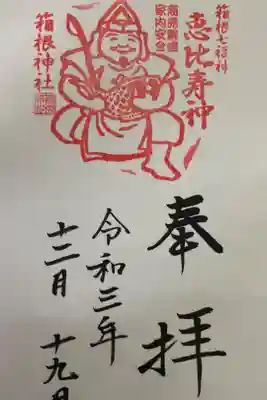 箱根七福神
恵比寿神
商売繁盛
家内安全
箱根神社
奉拝
令和三年
十二月 十九日